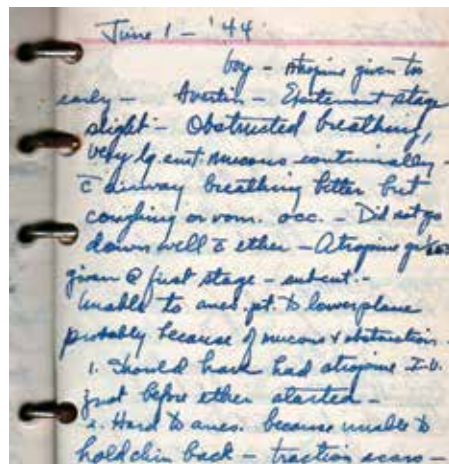 June 1 - '44
boy - Atropine given too
early - Avertin - Excitement stage
slight - Obstructed breathing,
very lg amt. mucous continually -
c̄ airway breathing better but
coughing or vom. occ. - Did not go
down well c̄ ether - Atropine gr
given @ first stage - subcut. -
Unable to anes. pt. to lower plane
probably because of mucous & obstruction.
1. Should have had atropine I.V.
just before ether started -
2. Hard to anes. because unable to
hold chin back - traction scars -